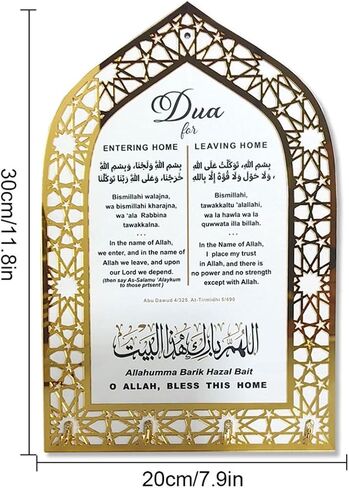 Dua
for
ENTERING HOME
بِسْمِ اللهِ وَلَجْنَا، وَبِسْمِ اللهِ
خَرَجْنَا، وَعَلَى اللهِ رَبِّنَا تَوَكَّلْنَا
Bismillahi walajna,
wa bismillahi kharajna,
wa 'ala Rabbina
tawakkalna.
...
In the name of Allah,
we enter, and in the name of
Allah we leave, and upon
our Lord we depend.
(then say As-Salamu 'Alaykum
to those prtsent)
LEAVING HOME
بِسْمِ اللهِ، تَوَكَّلْتُ عَلَى اللهِ
، وَلَا حَوْلَ وَلَا قُوَّةَ إِلَّا بِاللهِ
Bismillahi,
tawakkaltu 'alallahi,
wa la hawla wa la
quwwata illa billahi.
...
In the Name of Allah,
I place my trust
in Allah, and there is
no power and no strength
except with Allah.
Abu Dawud 4/325, At-Tirmidhi 5/490
اللهم بارك هذا البيت
Allahumma Barik Hazal Bait
O ALLAH, BLESS THIS HOME
30cm/11.8in
20cm/7.9in